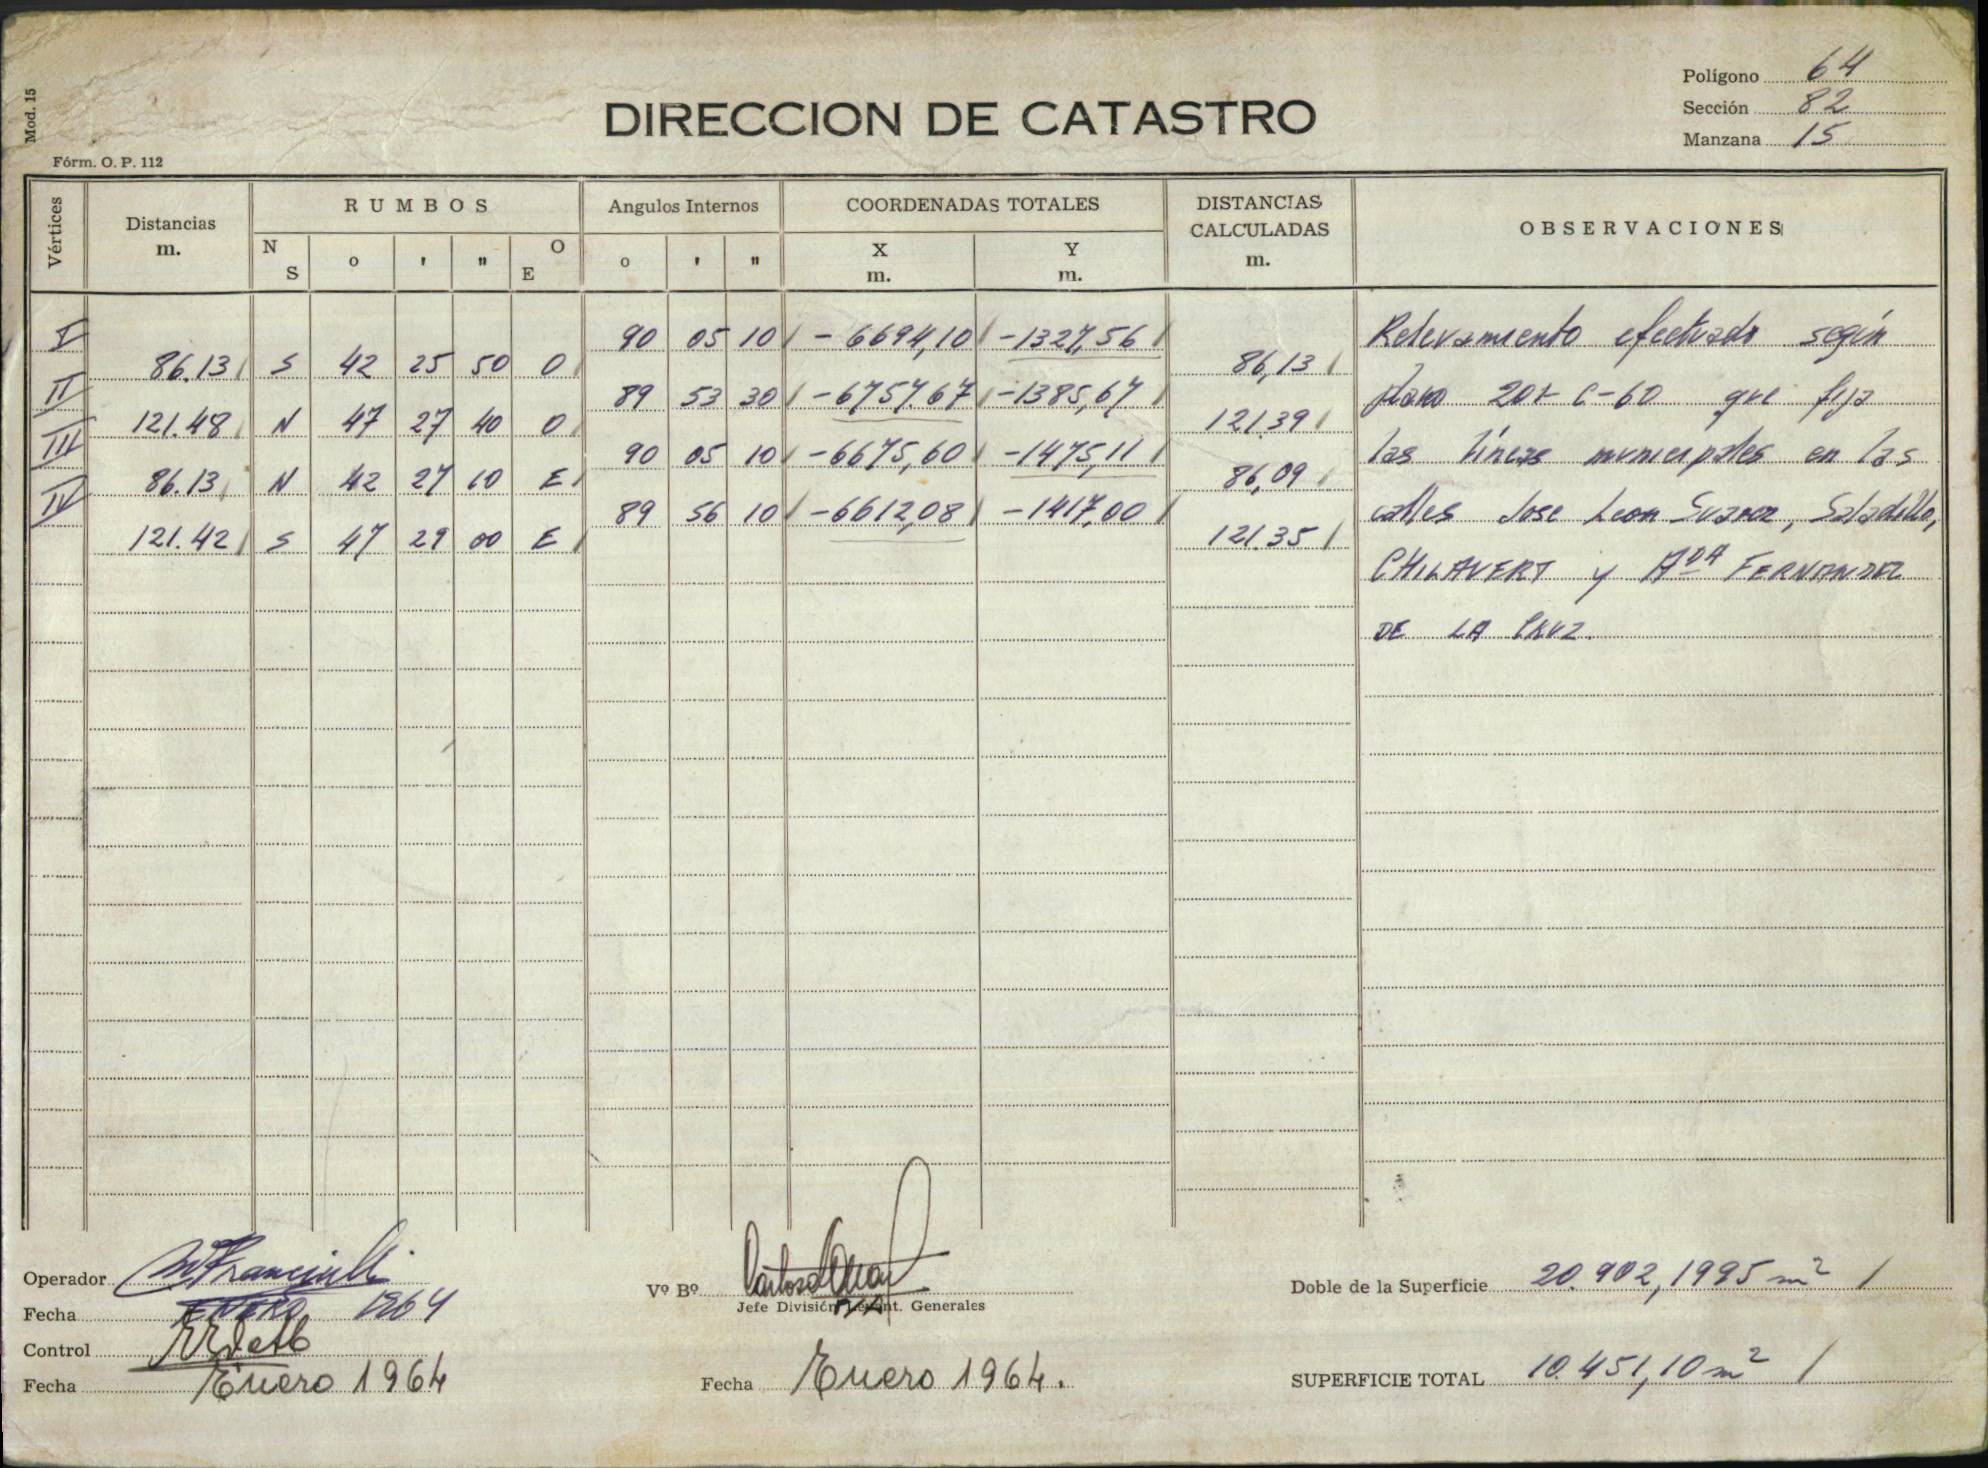 Mod. 15
Fórm. O. P. 112
DIRECCION DE CATASTRO
Polígono 64
Sección 82
Manzana 15
Vértices
Distancias m.
RUMBOS
N S ° ' " O E
Angulos Internos
° ' "
COORDENADAS TOTALES
X m. Y m.
DISTANCIAS CALCULADAS m.
OBSERVACIONES
I 90 05 10 -6694,10 -1327,56
86.13 S 42 25 50 O 86,13
II 89 53 30 -6757.67 -1385,67
121.48 N 47 27 40 O 121.39
III 90 05 10 -6675,60 -1475,11
86.13 N 42 27 10 E 86,09
IV 89 56 10 -6612,08 -1417,00
121.42 S 47 29 00 E 121.35
Relevamiento efectuado según
plano C-60 que fija
las líneas municipales en las
calles Jose Leon Suarez, Saladillo,
CHILAVERT y FERNANDEZ
DE LA CRUZ.
Operador
Fecha ENERO 1964
Control
Fecha Enero 1964
Vº Bº
Jefe División Levant. Generales
Fecha Enero 1964.
Doble de la Superficie 20.902,1995 m²
SUPERFICIE TOTAL 10.451,10 m²